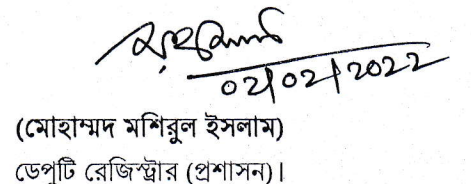 02/02/2022
(মোহাম্মদ মশিরুল ইসলাম)
ডেপুটি রেজিস্ট্রার (প্রশাসন)।